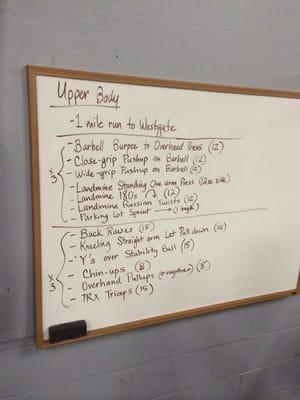 Upper Body
- 1 mile run to Westgate
x3
- Barbell Burpee to Overhead Press (12)
- Close-grip Pushup on Barbell (12)
- Wide-grip Pushup on Barbell (12)
- Landmine Standing One arm Press (12 ea side)
- Landmine 180s (12)
- Landmine Russian Twists (12)
- Parking Lot Sprint → (1 length)
x3
- Back Raises (15)
- Kneeling Straight arm Lat Pull down (15)
- Y's over Stability Ball (15)
- Chin-ups (8)
- Overhand Pullups (or negatives) (8)
- TRX Triceps (15)